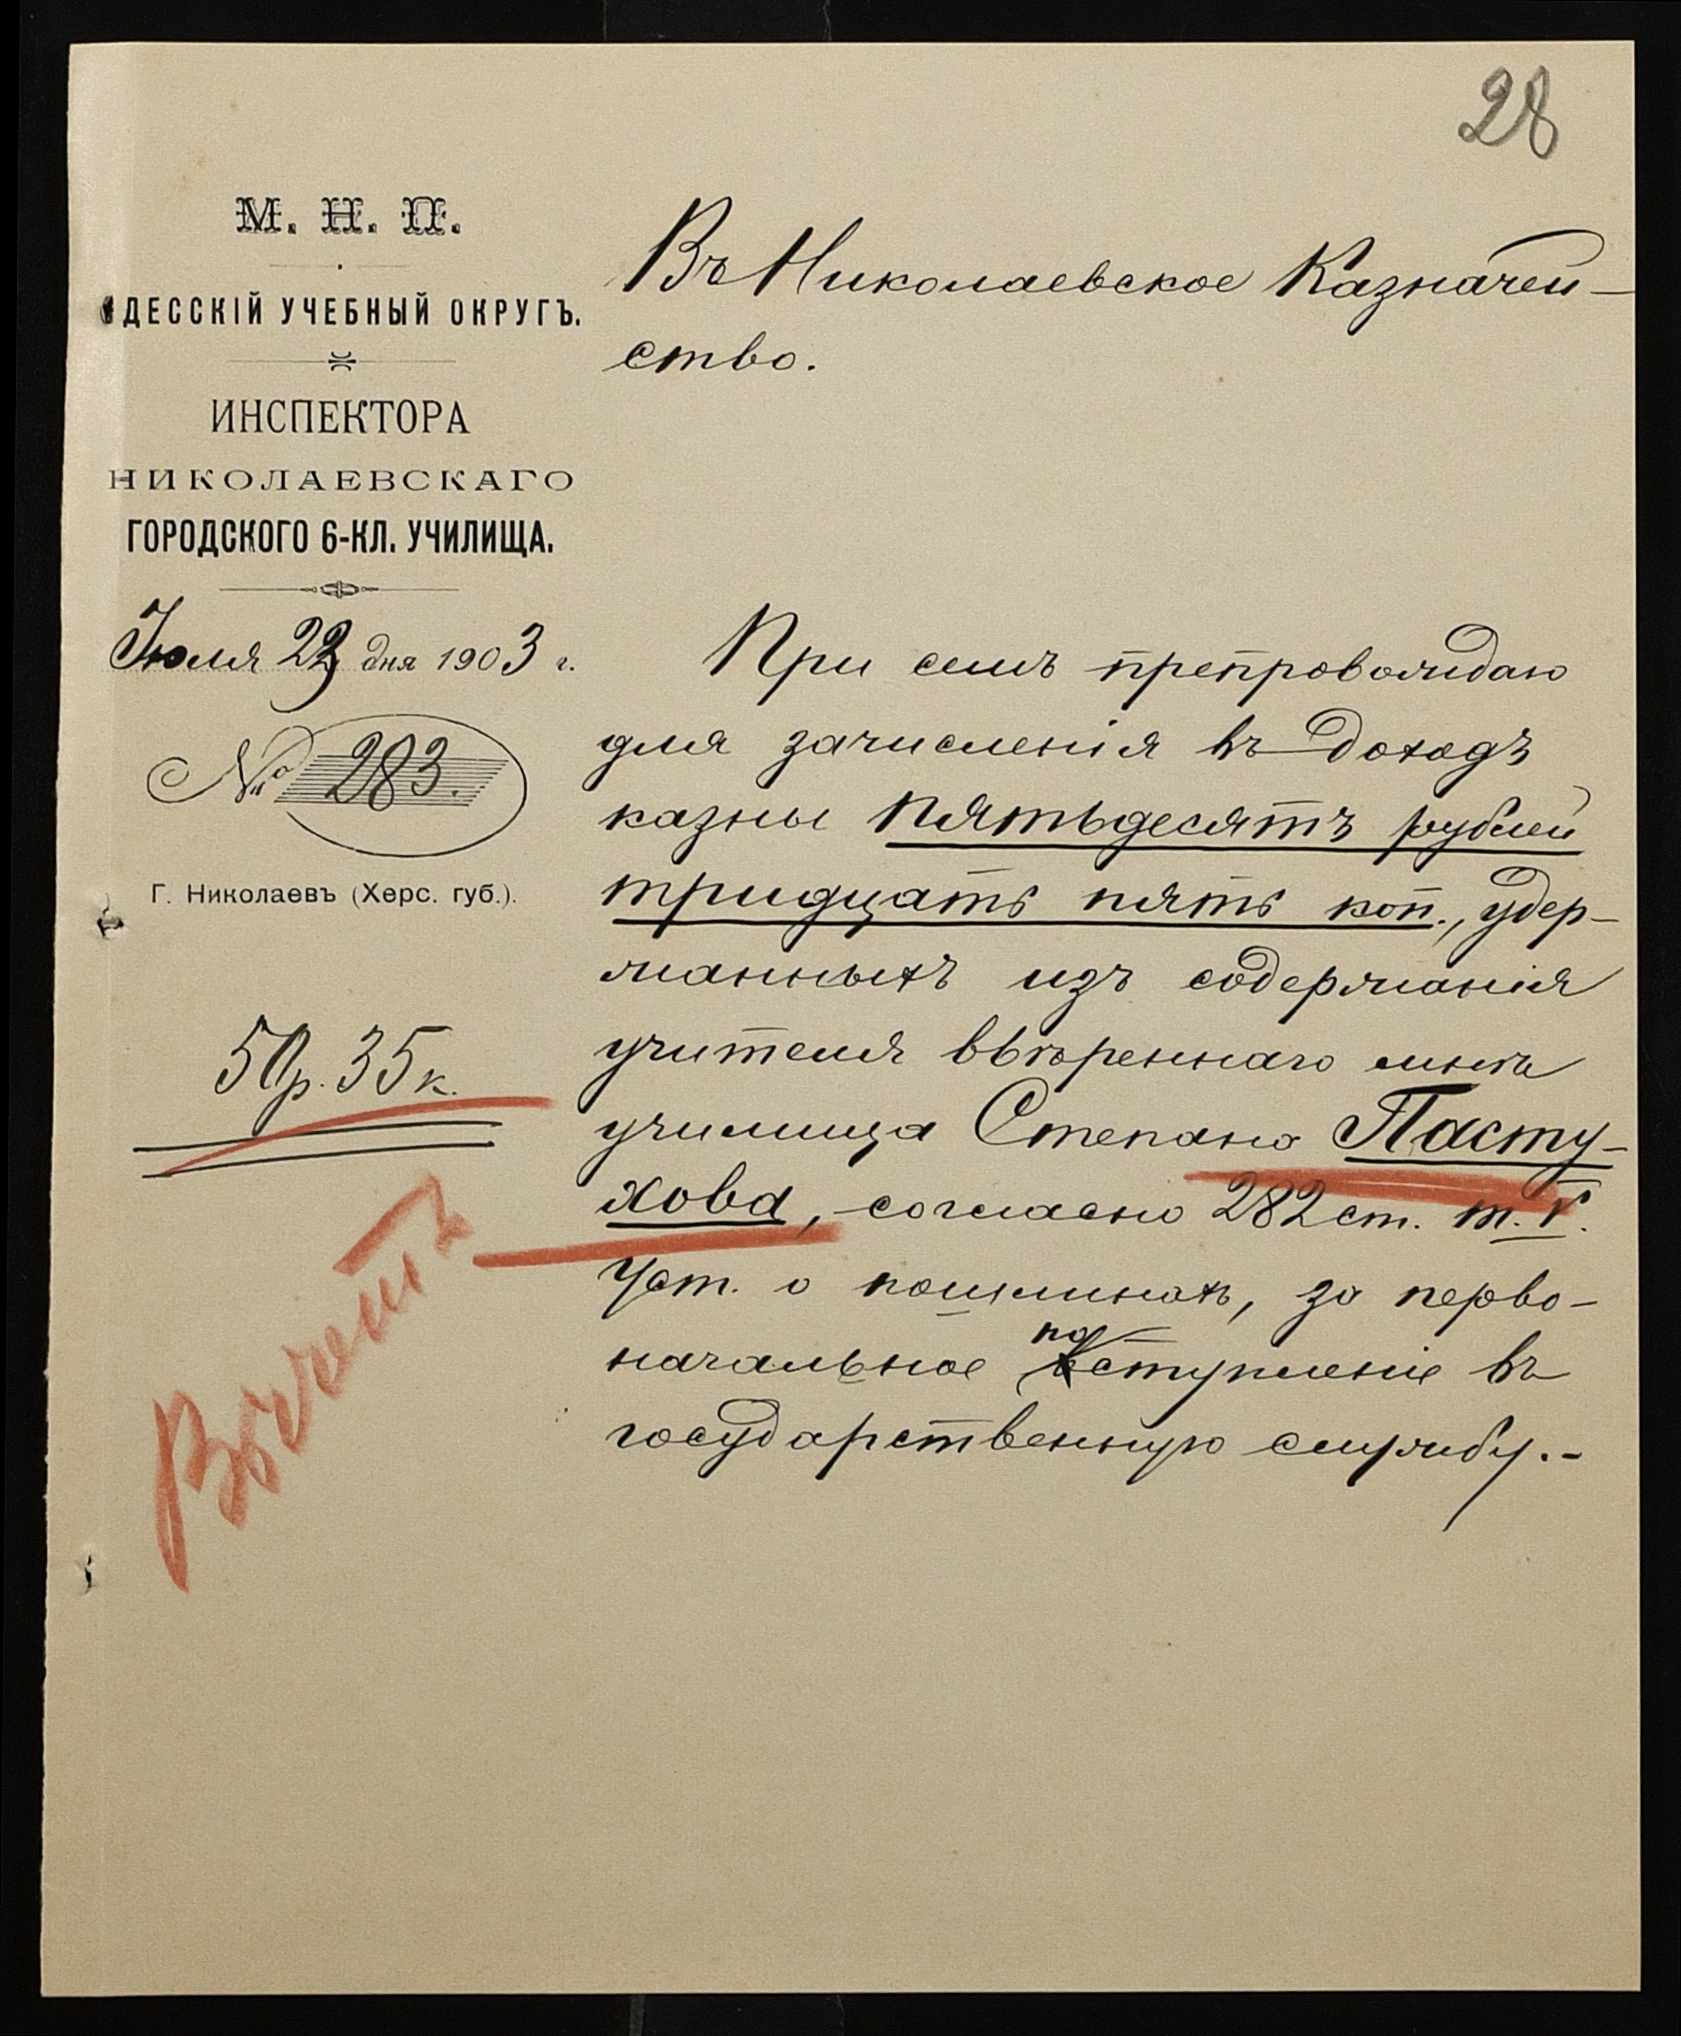 28
М. Н. П.
ОДЕССКІЙ УЧЕБНЫЙ ОКРУГЪ.
ИНСПЕКТОРА
НИКОЛАЕВСКАГО
ГОРОДСКОГО 6-КЛ. УЧИЛИЩА.
Іюля 23 дня 1903 г.
№ 283.
Г. Николаевъ (Херс. губ.).
50р. 35к.
Вычетъ
Въ Николаевское Казначей-
ство.
При семъ препровождаю
для зачисленія въ доходъ
казны пятьдесятъ рублей
тридцать пять коп., удер-
жанныхъ изъ содержанія
учителя ввѣреннаго мнѣ
училища Степана Пасту-
хова, согласно 282 ст. т. V.
Уст. о пошлинахъ, за перво-
начальное поступленіе въ
государственную службу.-